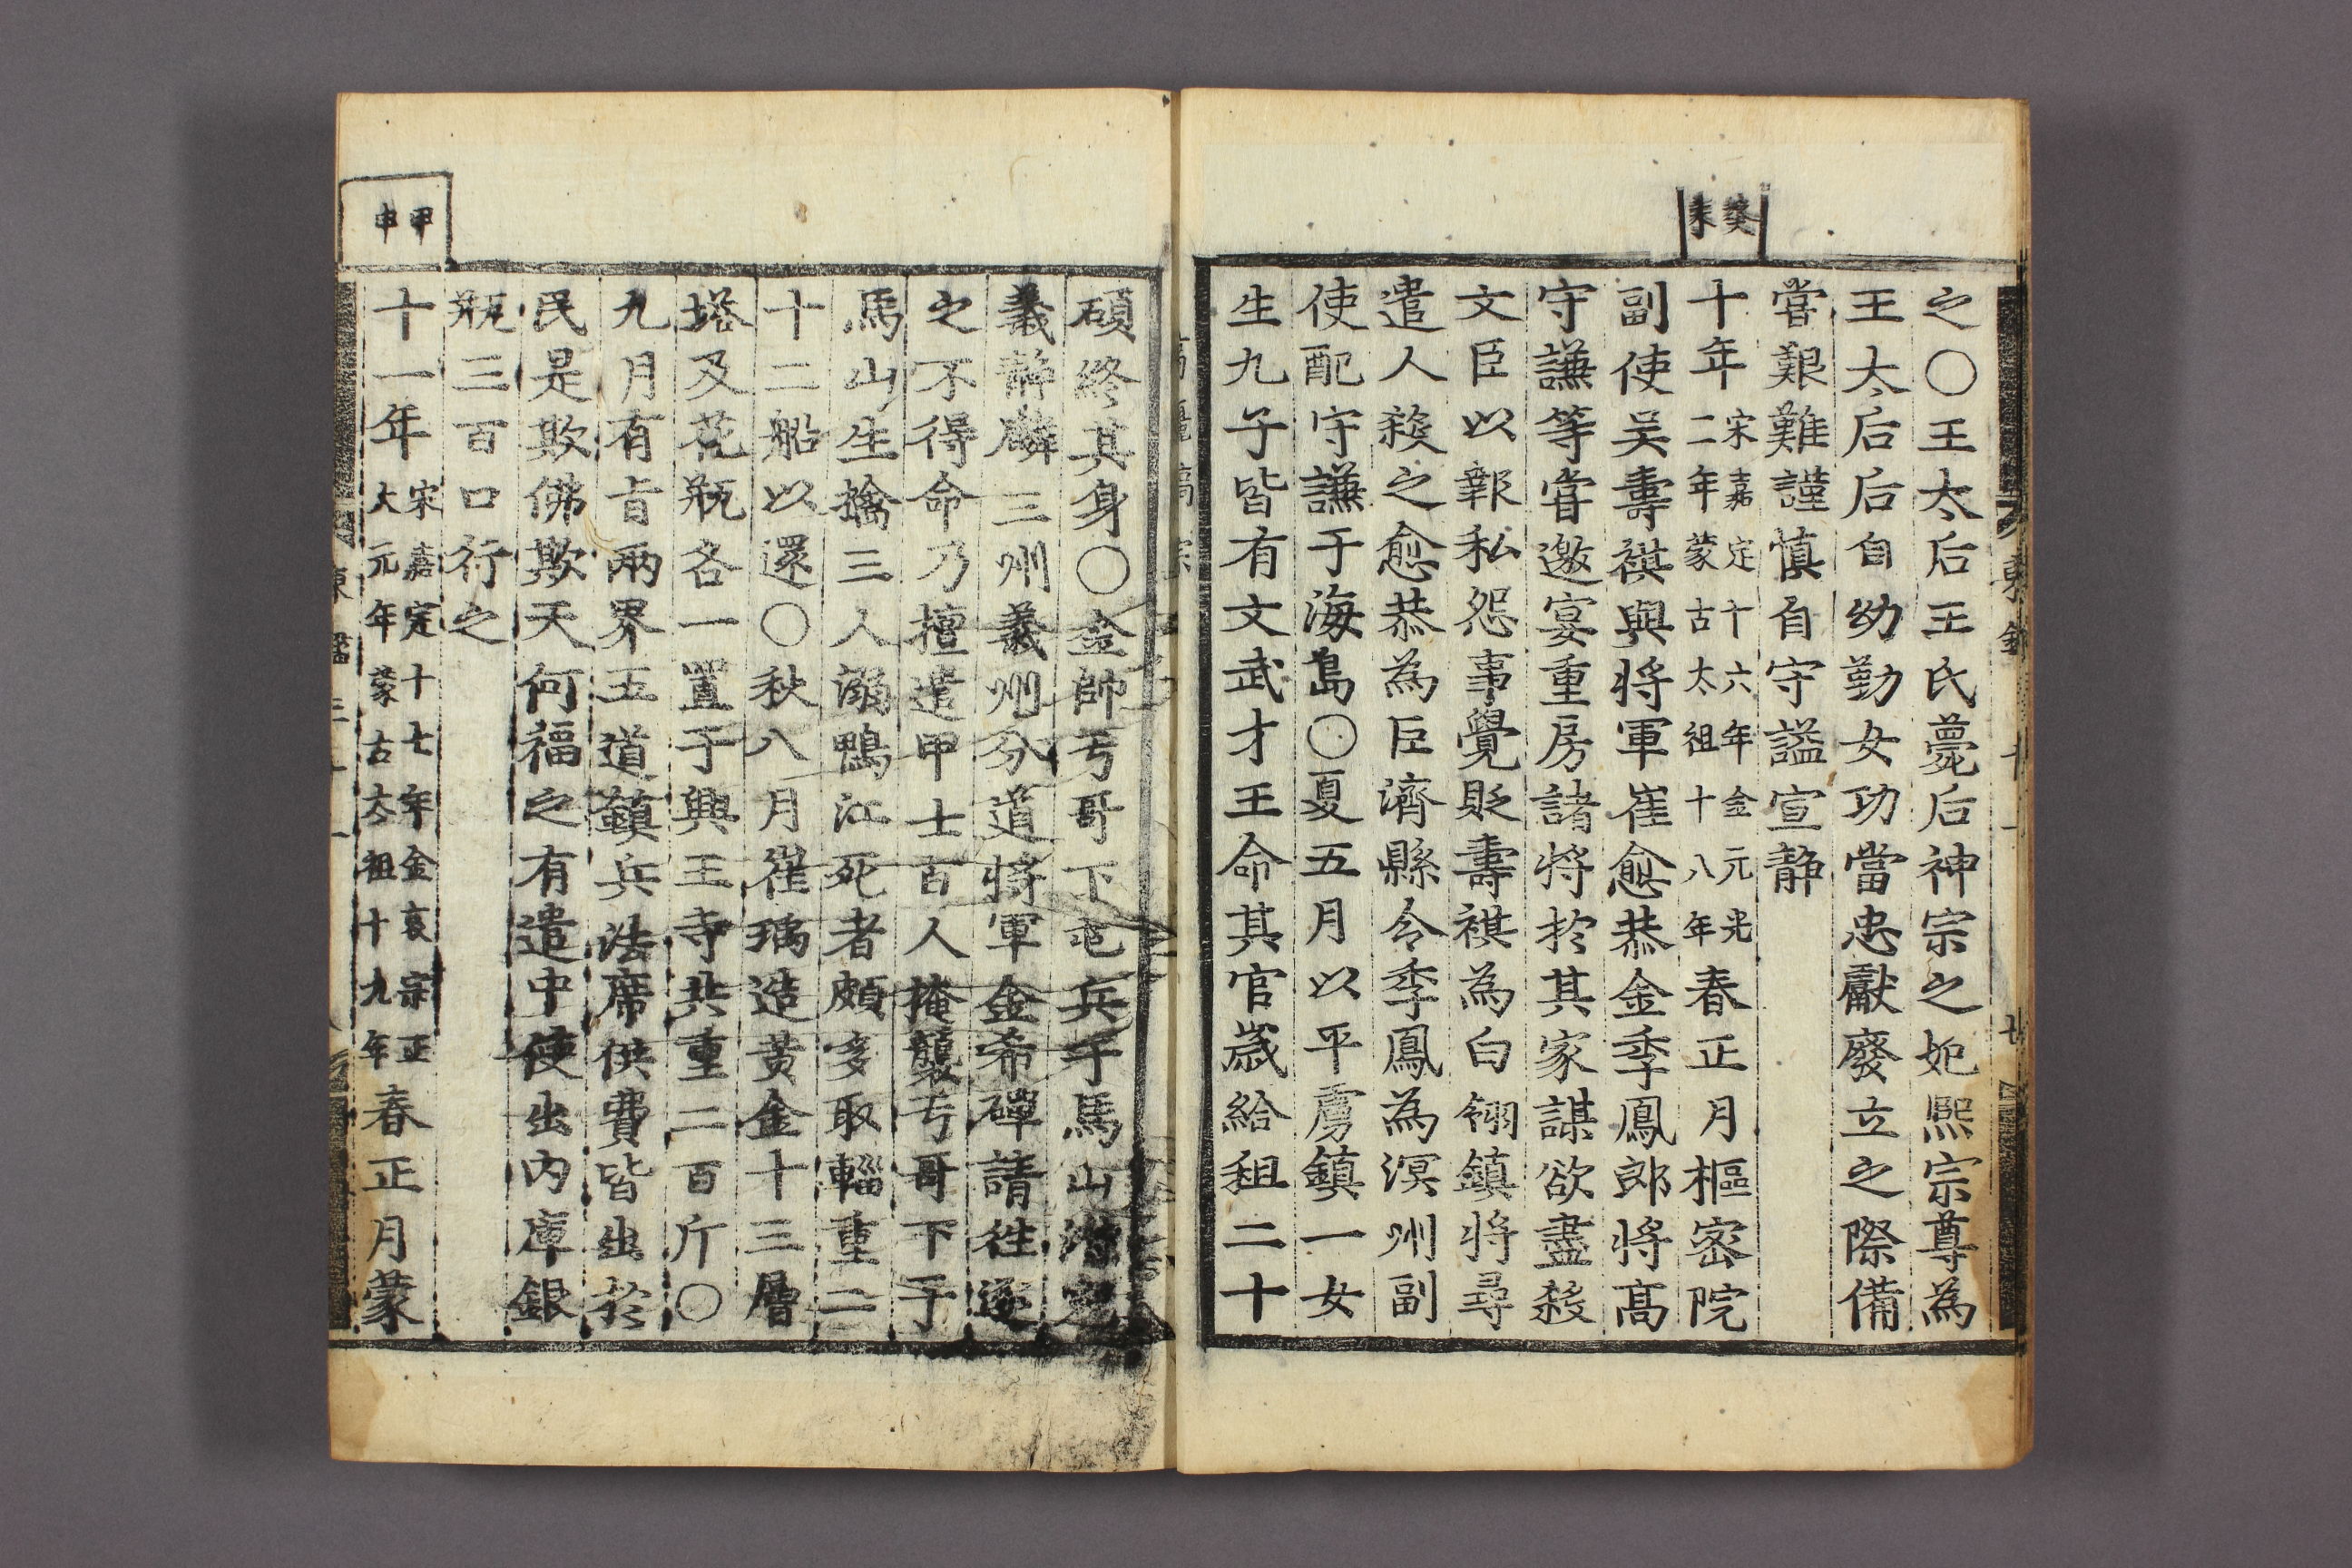 癸未
之〇王太后王氏薨后神宗之妃熙宗尊為
王太后后自幼勤女功當忠獻廢立之際備
嘗艱難謹慎自守謚宣静
十年宋嘉定十六年金元光二年蒙古太祖十八年春正月樞密院
副使吴壽祺與将軍崔愈恭金季鳳郎将高
守謙等嘗邀宴重房諸将於其家謀欲盡殺
文臣以報私怨事覺貶壽祺為白翎鎮将尋
遣人殺之愈恭為巨濟縣令季鳳為溟州副
使配守謙于海島〇夏五月以平虜鎮一女
生九子皆有文武才王命其官歲給租二十
碩終其身〇金帥亏哥下屯兵于馬山潜寇
義静麟三州義州分道将軍金希磾請往逐
之不得命乃擅遣甲士百人掩襲亏哥下于
馬山生擒三人溺鴨江死者頗多取輜重二
十二船以還〇秋八月崔瑀造黄金十三層
塔及花瓶各一置于興王寺共重二百斤〇
九月有旨兩界五道鎮兵法席供費皆出於
民是欺佛欺天何福之有遣中使出内庫銀
瓶三百口行之
甲申
十一年宋嘉定十七年金哀宗正大元年蒙古太祖十九年春正月蒙